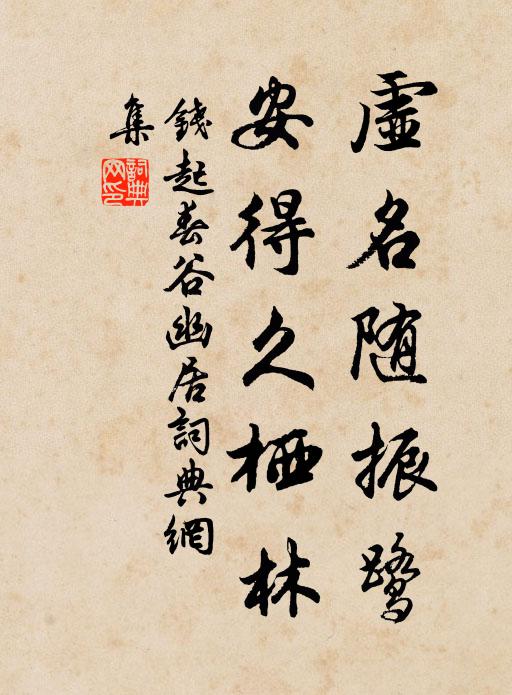 虛名随振鷺
安得久栖林
錢起春谷幽居詞典網
集
詞典網印